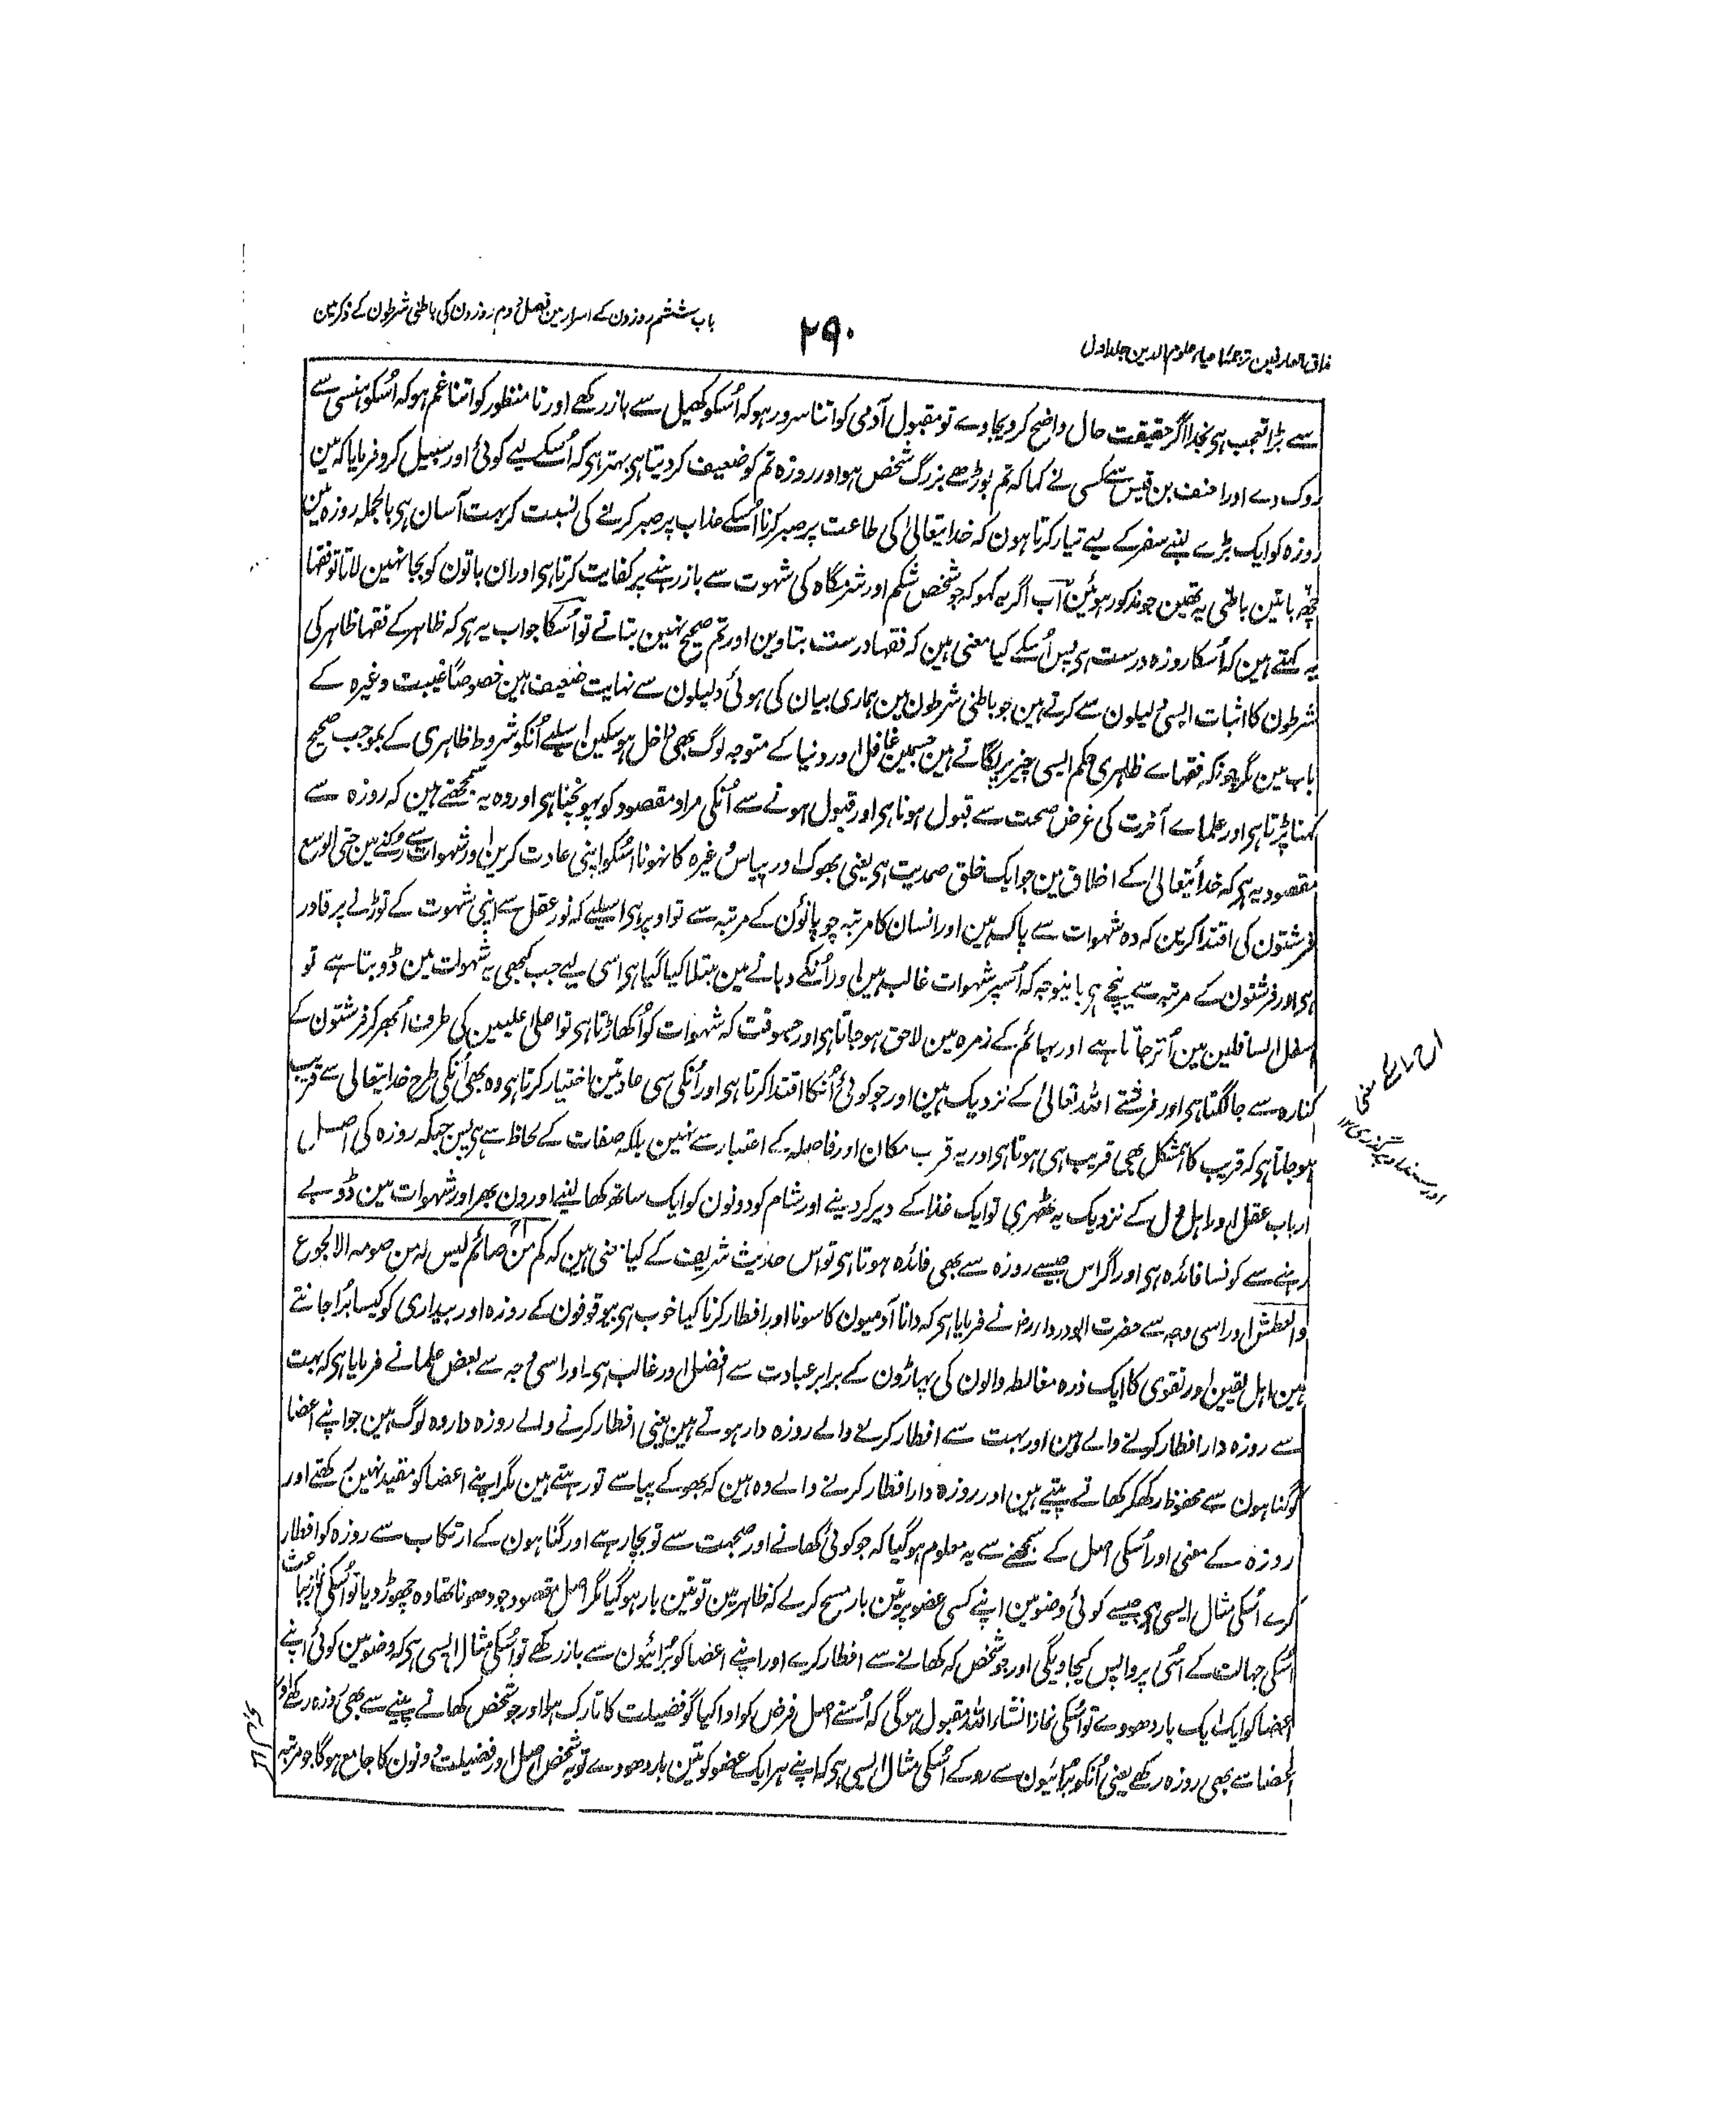 مذاق العارفین ترجمہ احیاء علوم الدین جلد اول
۲۹۰
باب ششم روزون کے اسرار مین فصل دوم روزون کی باطنی شرطون کے ذکر مین
سے بڑا تعجب ہی بخدا اگر حقیقت حال واضح کر دیجاوے تو مقبول آدمی کو اتنا سرور ہو کہ اُسکو کھیل سے باز رکھے اور نا منظور کو اتنا غم ہو کہ اُسکو ہنسی سے
روک دے اور احنف بن قیس سے کسی نے کہا کہ تم بوڑھے بزرگ شخص ہو اور روزہ تم کو ضعیف کر دیتا ہی بہتر ہی کہ اُسکے لیے کوئی اور سبیل کرو فرمایا کہ مین
روزہ کو ایک بڑے لنبے سفر کے لیے تیار کرتا ہون کہ خدایتعالیٰ کی طاعت پر صبر کرنا اُسکے عذاب پر صبر کرنے کی نسبت کر بہت آسان ہی بالجملہ روزہ مین
چھہ باتین باطنی یہ تھین جو مذکور ہوئین آب اگر یہ کہو کہ جو شخص شکم اور شرمگاہ کی شہوت سے باز رہنے پر کفایت کرتا ہی اور ان باتون کو بجا نہین لاتا تو فقہا
یہ کہتے ہین کہ اُسکا روزہ درست ہی پس اُسکے کیا معنی ہین کہ فقہا درست بتاوین اور تم صحیح نہین بتاتے تو اُسکا جواب یہ ہی کہ ظاہر کے فقہا ظاہر کی
شرطون کا اثبات ایسی دلیلون سے کرتے ہین جو باطنی شرطون مین ہماری بیان کی ہوئی دلیلون سے نہایت ضعیف ہین خصوصًا غیبت وغیرہ کے
باب مین مگر چونکہ فقہاے ظاہری حکم ایسی چیز پر لگاتے ہین جسمین غافل اور دنیا کے متوجہ لوگ بھی داخل ہو سکین اسلیے اُنکو شروط ظاہری کے بموجب صحیح
کہنا پڑتا ہی اور علماے آخرت کی غرض صحت سے قبول ہونا ہی اور قبول ہونے سے اُنکی مراد مقصود کو پہونچنا ہی اور وہ یہ سمجھتے ہین کہ روزہ سے
مقصود یہ ہی کہ خدائیتعالیٰ کے اخلاق مین جو ایک خلق صمدیت ہی یعنی بھوک اور پیاس وغیرہ کا نہونا اُسکو اپنی عادت کرین اور شہوات سے رُکنے مین حتی الوسع
فرشتون کی اقتدا کرین کہ وہ شہوات سے پاک ہین اور انسان کا مرتبہ چوپائون کے مرتبہ سے تو اوپر ہی اسلیے کہ نور عقل سے اپنی شہوت کے توڑنے پر قادر
ہی اور فرشتون کے مرتبہ سے نیچے ہی باینوجہ کہ اُسپر شہوات غالب ہین اور اُنکے دبانے مین مبتلا کیا گیا ہی اسی لیے جب کبھی یہ شہوات مین ڈوبتا ہے تو
اسفل السافلین مین اُتر جاتا ہے اور بہائم کے زمرہ مین لاحق ہو جاتا ہی اور جسوقت کہ شہوات کو اُکھاڑتا ہی تو اعلیٰ علیین کی طرف اُبھر کر فرشتون کے
کنارہ سے جا لگتا ہی اور فرشتے اللہ تعالیٰ کے نزدیک ہین اور جو کوئی اُنکا اقتدا کرتا ہی اور اُنکی سی عادتین اختیار کرتا ہی وہ بھی اُنکی طرح خدایتعالی سے قریب
ہو جاتا ہی کہ قریب کا ہمشکل بھی قریب ہی ہوتا ہی اور یہ قرب مکان اور فاصلہ کے اعتبار سے نہین بلکہ صفات کے لحاظ سے ہی پس جبکہ روزہ کی اصل
ارباب عقل اور اہل دل کے نزدیک یہ ٹھہری تو ایک غذا کے دیر کر دینے اور شام کو دونون کو ایک ساتھ کھا لینے اور دن بھر اور شہوات مین ڈوبے
رہنے سے کونسا فائدہ ہی اور اگر اس جیسے روزہ سے بھی فائدہ ہوتا ہی تو اس حدیث شریف کے کیا معنی ہین کہ کم من صائم لیس لہ من صومہ الا الجوع
والعطش اور اسی وجہ سے حضرت ابو دردا رض نے فرمایا ہی کہ دانا آدمیون کا سونا اور افطار کرنا کیا خوب ہی بیوقوفون کے روزہ اور بیداری کو کیسا بُرا جانتے
ہین اہل یقین اور تقوی کا ایک ذرہ مغالطہ والون کی پہاڑون کے برابر عبادت سے افضل اور غالب ہی۔ اور اسی وجہ سے بعض علما نے فرمایا ہی کہ بہت
سے روزہ دار افطار کرنے والے ہین اور بہت سے افطار کرنے والے روزہ دار ہوتے ہین یعنی افطار کرنے والے روزہ دار وہ لوگ ہین جو اپنے اعضا
کو گناہون سے محفوظ رکھکر کھاتے پیتے ہین اور روزہ دار افطار کرنے والے وہ ہین کہ بھوکے پیاسے تو رہتے ہین مگر اپنے اعضا کو مقید نہین رکھتے اور
روزہ کے معنی اور اُسکی اصل کے سمجھنے سے یہ معلوم ہو گیا کہ جو کوئی کھانے اور صحبت سے تو بچا رہے اور گناہون کے ارتکاب سے روزہ کو افطار
کرے اُسکی مثال ایسی ہی جیسے کوئی وضو مین اپنے کسی عضو پر تین بار مسح کرلے کہ ظاہر مین تو تین بار ہو گیا مگر اصل مقصود جو دھونا تھا وہ چھوڑ دیا تو اُسکی نماز بباعث
اُسکی جہالت کے اُسی پر واپس کیجاویگی اور جو شخص کہ کھانے سے افطار کرے اور اپنے اعضا کو بُرائیون سے باز رکھے تو اُسکی مثال ایسی ہی کہ وضو مین کوئی اپنے
اعضا کو ایک ایک بار دھووے تو اُسکی نماز انشاء اللہ مقبول ہوگی کہ اُسنے اصل فرض کو ادا کیا گو فضیلت کا تارک ہوا اور جو شخص کھانے پینے سے بھی روزہ رکھے اور
اعضا سے بھی روزہ رکھے یعنی اُنکو بُرائیون سے روکے اُسکی مثال ایسی ہی کہ اپنے ہر ایک عضو کو تین بار دھووے تو یہ شخص اصل اور فضیلت دونون کا جامع ہوگا جو مرتبہ